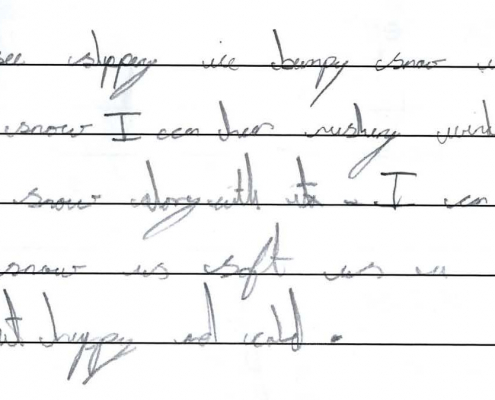 see slippy ice bumpy snow
snow I can hear rushing wind
snow along with it. I can
snow is soft as a
happy and cold.